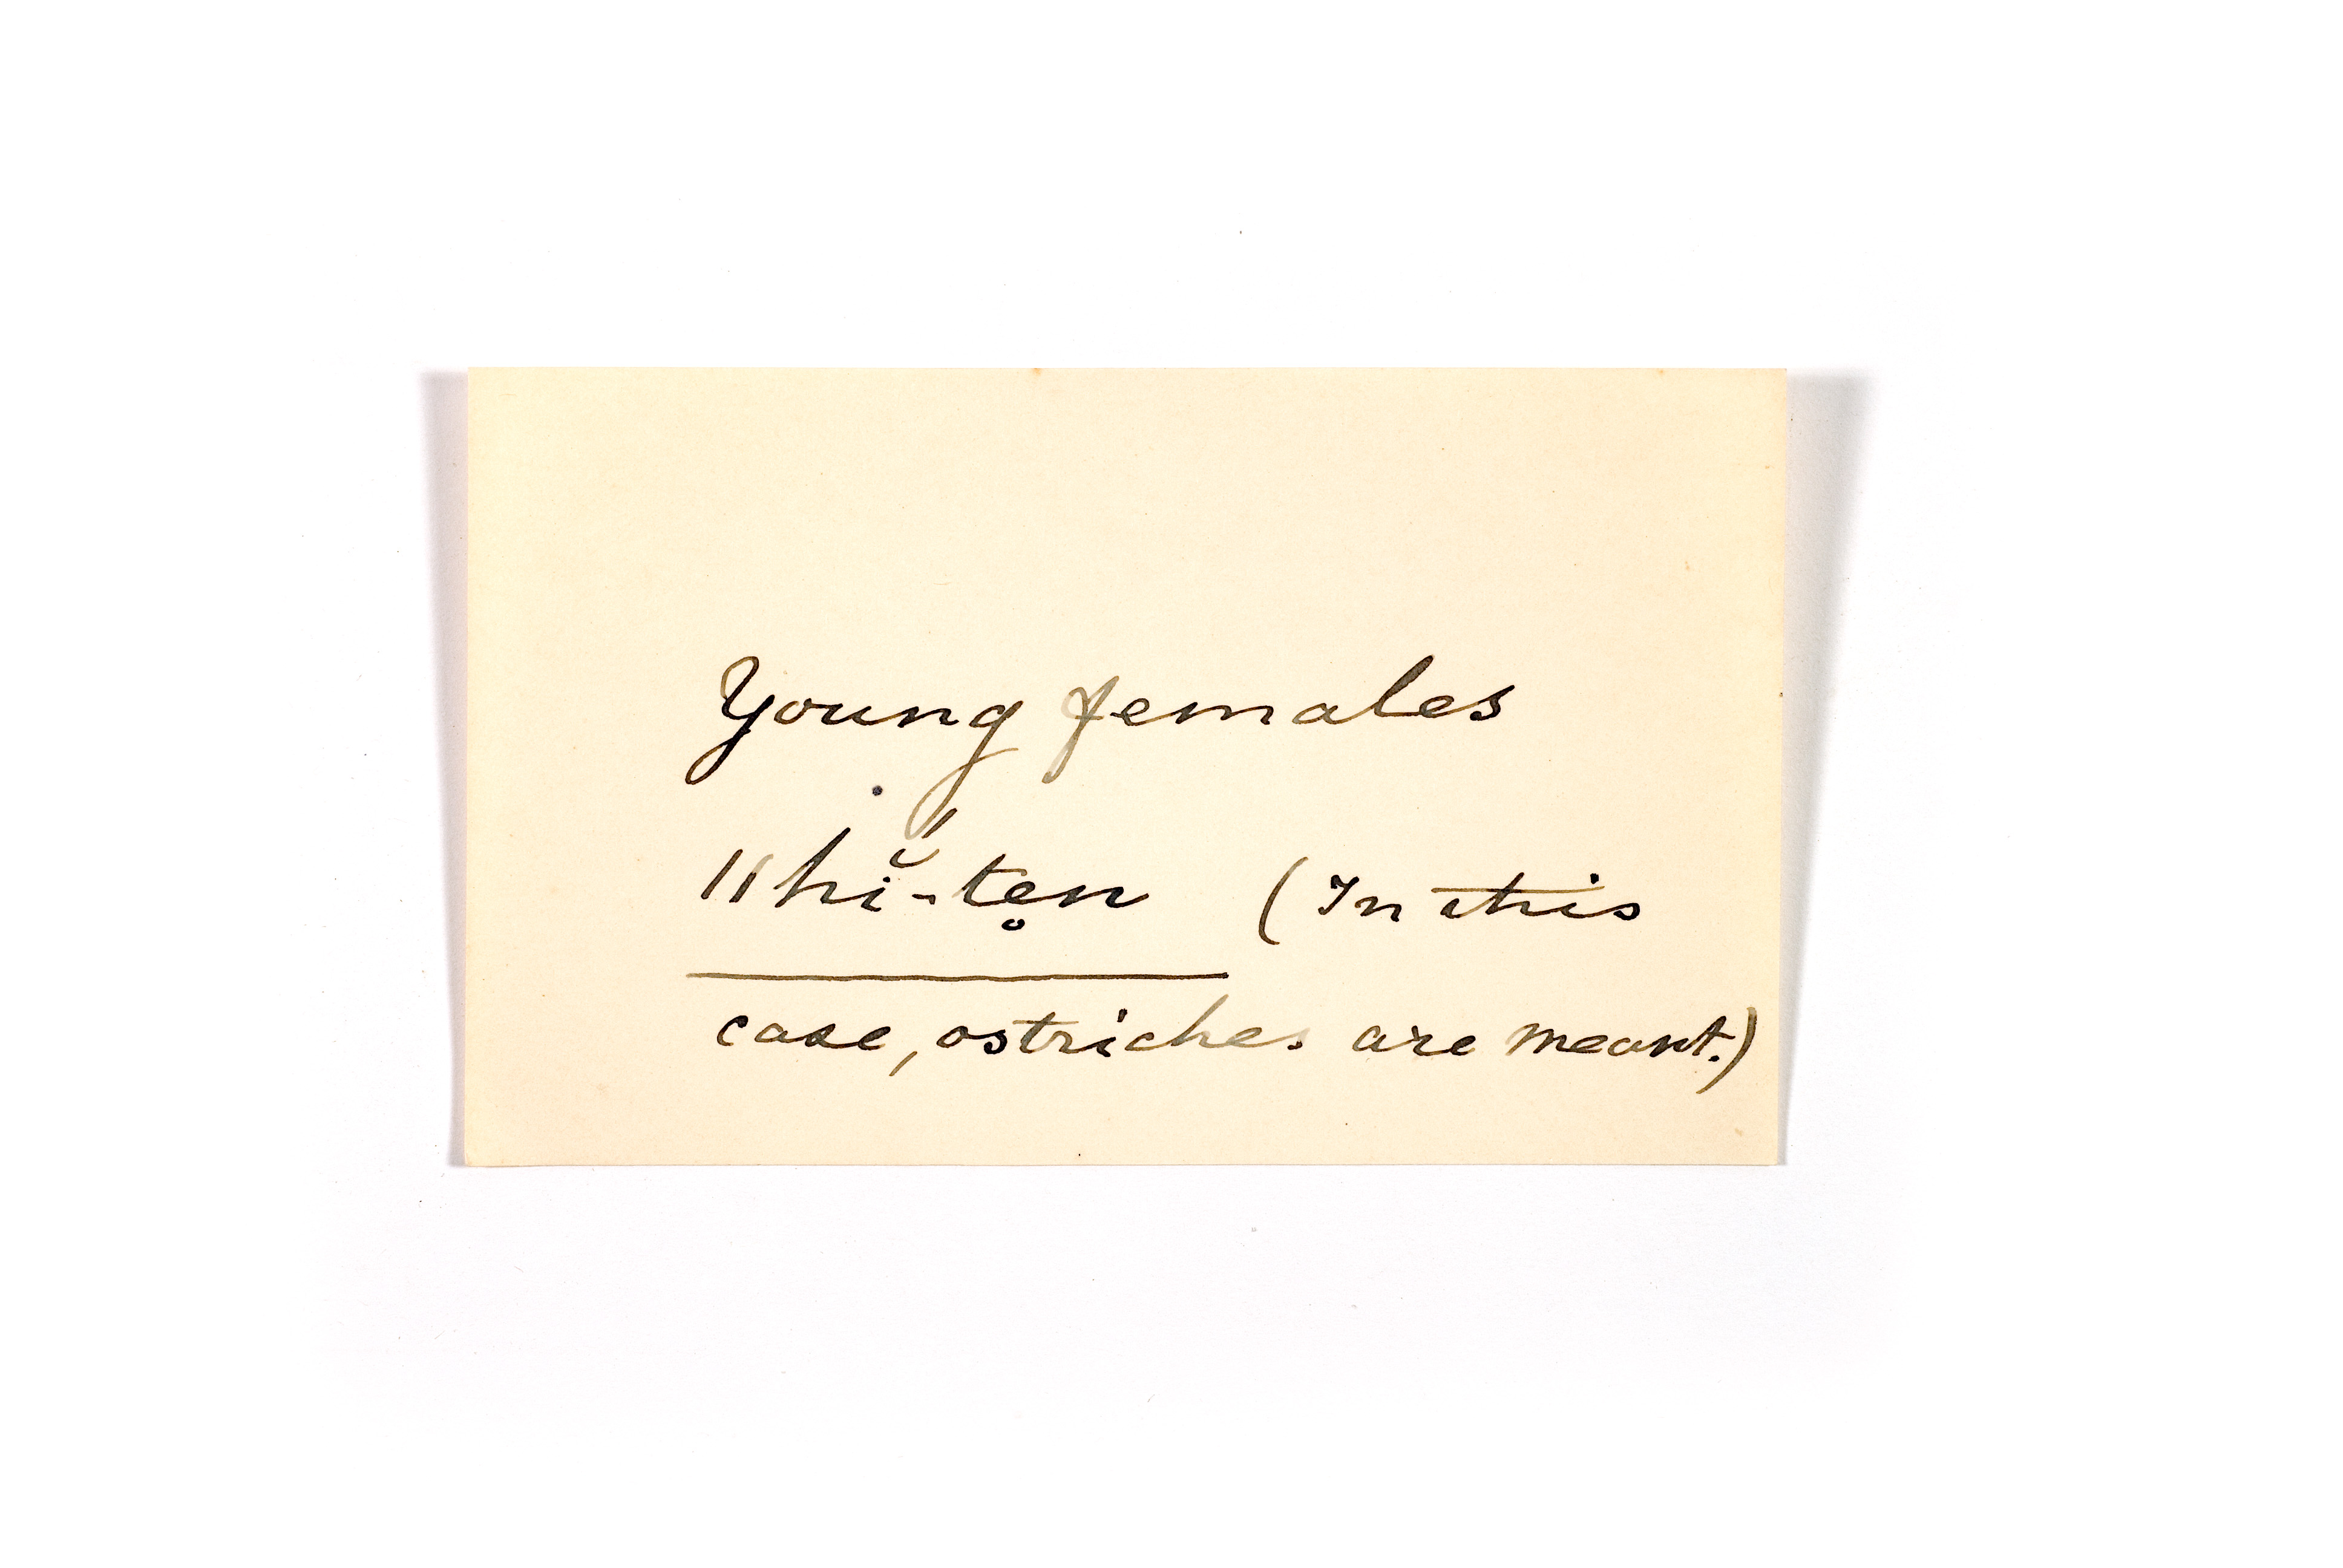 Young females
ǁhĭ́-te̥n (In this
case, ostriches are meant.)